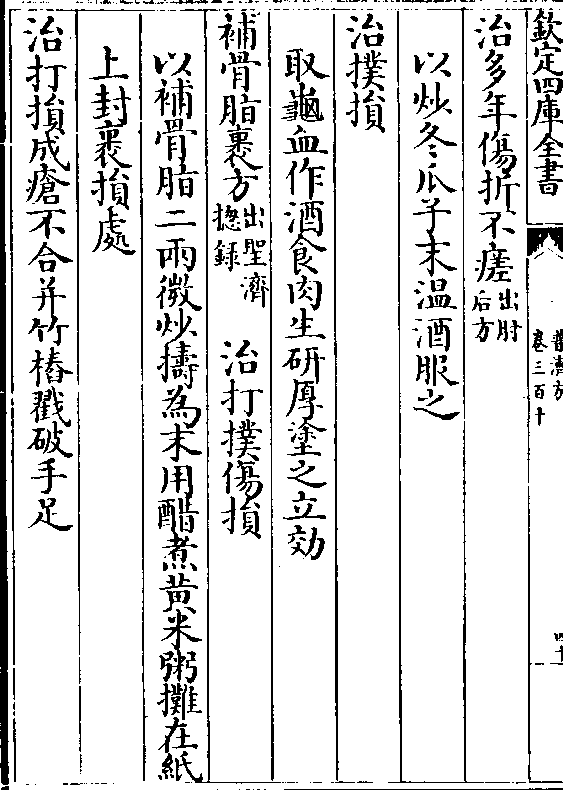 欽定四庫全書
普濟方
卷三百十
四十
治多年傷折不瘥出肘后方
以炒冬瓜子末温酒服之
治撲損
取龜血作酒食肉生研厚塗之立効
補骨脂裹方出聖濟總録 治打撲傷損
以補骨脂二兩微炒擣為末用醋煮黄米粥攤在紙
上封裹損處
治打損成瘡不合并竹樁戳破手足